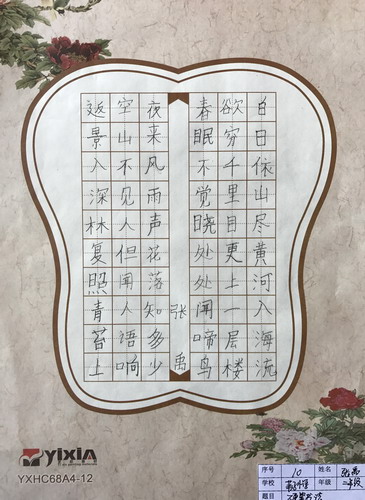 白日依山尽黄河入海流
欲穷千里目更上一层楼
春眠不觉晓处处闻啼鸟
张禹
夜来风雨声花落知多少
空山不见人但闻人语响
返景入深林复照青苔上
YXHC68A4-12
序号 10 姓名 张禹
学校 年级
题目 硬笔书法